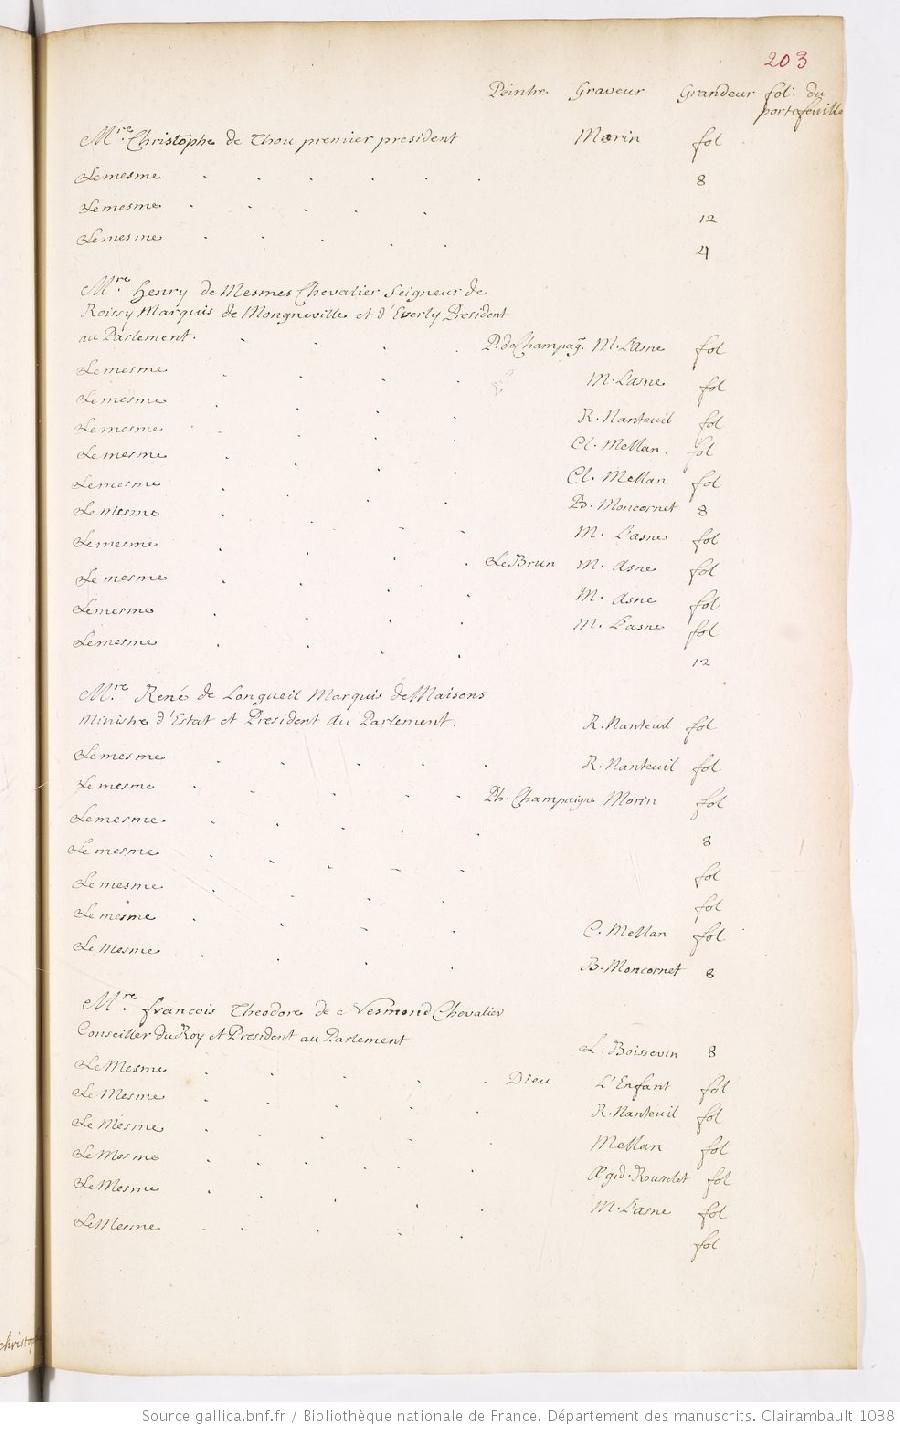 203
Peintre. Graveur Grandeur fol. du
portefeuille
Mre. Christophe de Thou premier president Morin fol
Le mesme 8
Le mesme 12
Le mesme 4
Mre. Henry de Mesmes Chevalier Seigneur de
Roissy Marquis de Mongneville et d'Everly President
au Parlement. P. de Champag. M. L'asne fol
Le mesme M. L'asne fol
Le mesme R. Nanteuil fol
Le mesme Cl. Mellan. fol
Le mesme Cl. Mellan fol
Le mesme B. Moncornet 8
Le mesme M. L'asne fol
Le mesme Le Brun M. Asne fol
Le mesme M. Asne fol
Le mesme M. L'asne fol
Le mesme 12
Mre. René de Longueil Marquis de Maisons
Ministre d'Estat et President du Parlement. R. Nanteuil fol
Le mesme R. Nanteuil fol
Le mesme Ph. Champaigne Morin fol
Le mesme 8
Le mesme fol
Le mesme fol
Le mesme C. Mellan fol
Le Mesme B. Moncornet 8
Mre. francois Theodore de Nesmond Chevalier
Conseiller du Roy et President au Parlement L. Boissevin 8
Le Mesme Dieu L'Enfant fol
Le Mesme R. Nanteuil fol
Le Mesme Mellan fol
Le Mesme Ægid. Rousselet fol
Le Mesme M. L'asne fol
Le Mesme fol
Source gallica.bnf.fr / Bibliothèque nationale de France. Département des manuscrits. Clairambault 1038